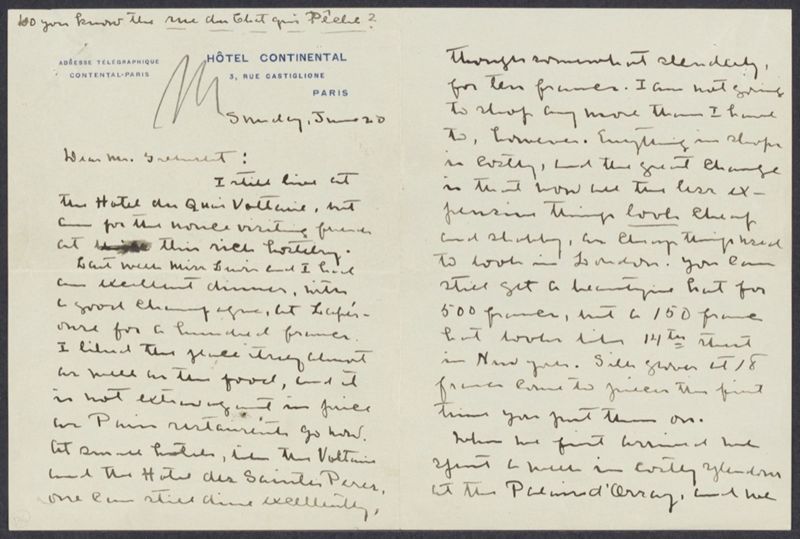 Do you know the rue du Chat qui Pêche?
ADRESSE TÉLÉGRAPHIQUE
CONTENTAL-PARIS
HÔTEL CONTINENTAL
3, RUE CASTIGLIONE
PARIS
Sunday, June 20
Dear Mr.
I still live at
the Hotel du Quai Voltaire, but
am for the nonce visiting friends
at this rich hostelry.
Last week Miss Lewis and I had
an excellent dinner, with
a good champagne, at Lapér-
ouse for a hundred francs.
I liked the place itself almost
as well as the food, and it
is not extravagant in price
as Paris restaurants go now.
At small hotels, like the Voltaire
and the Hotel des Saints Peres,
one can still dine excellently,
though somewhat slenderly,
for ten francs. I am not going
to shop any more than I have
to, however. Everything in shops
is costly, and the great change
is that now all the less ex-
pensive things look cheap
and shabby, as cheap things used
to look in London. You can
still get a beautiful hat for
500 francs, but a 150 franc
hat looks like 14th street
in New York. Silk gloves at 18
francs come to pieces the first
time you put them on.
When we first arrived we
spent a week in costly splendor
at the Palais d'Orsay, and we